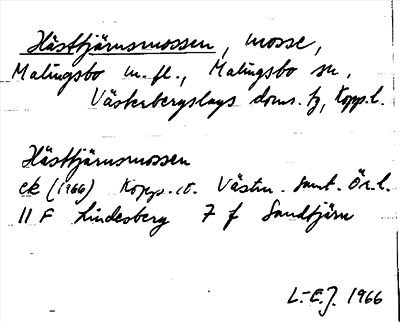 Hästtjärnsmossen, mosse,
Malingsbo m.fl., Malingsbo sn,
Västerbergslags doms. tg, Kopp.l.
Hästtjärnsmossen
ek (1966) Kopp. o. Västm. samt Ör.l.
11 F Lindesberg 7 f Sandtjärn
L.-E.J. 1966